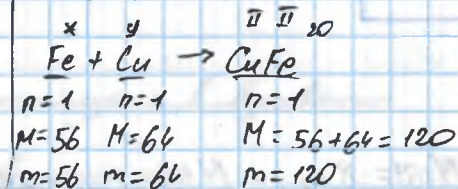 x y II II 20
Fe + Cu → CuFe
n=1 n=1 n=1
M=56 M=64 M=56+64=120
m=56 m=64 m=120